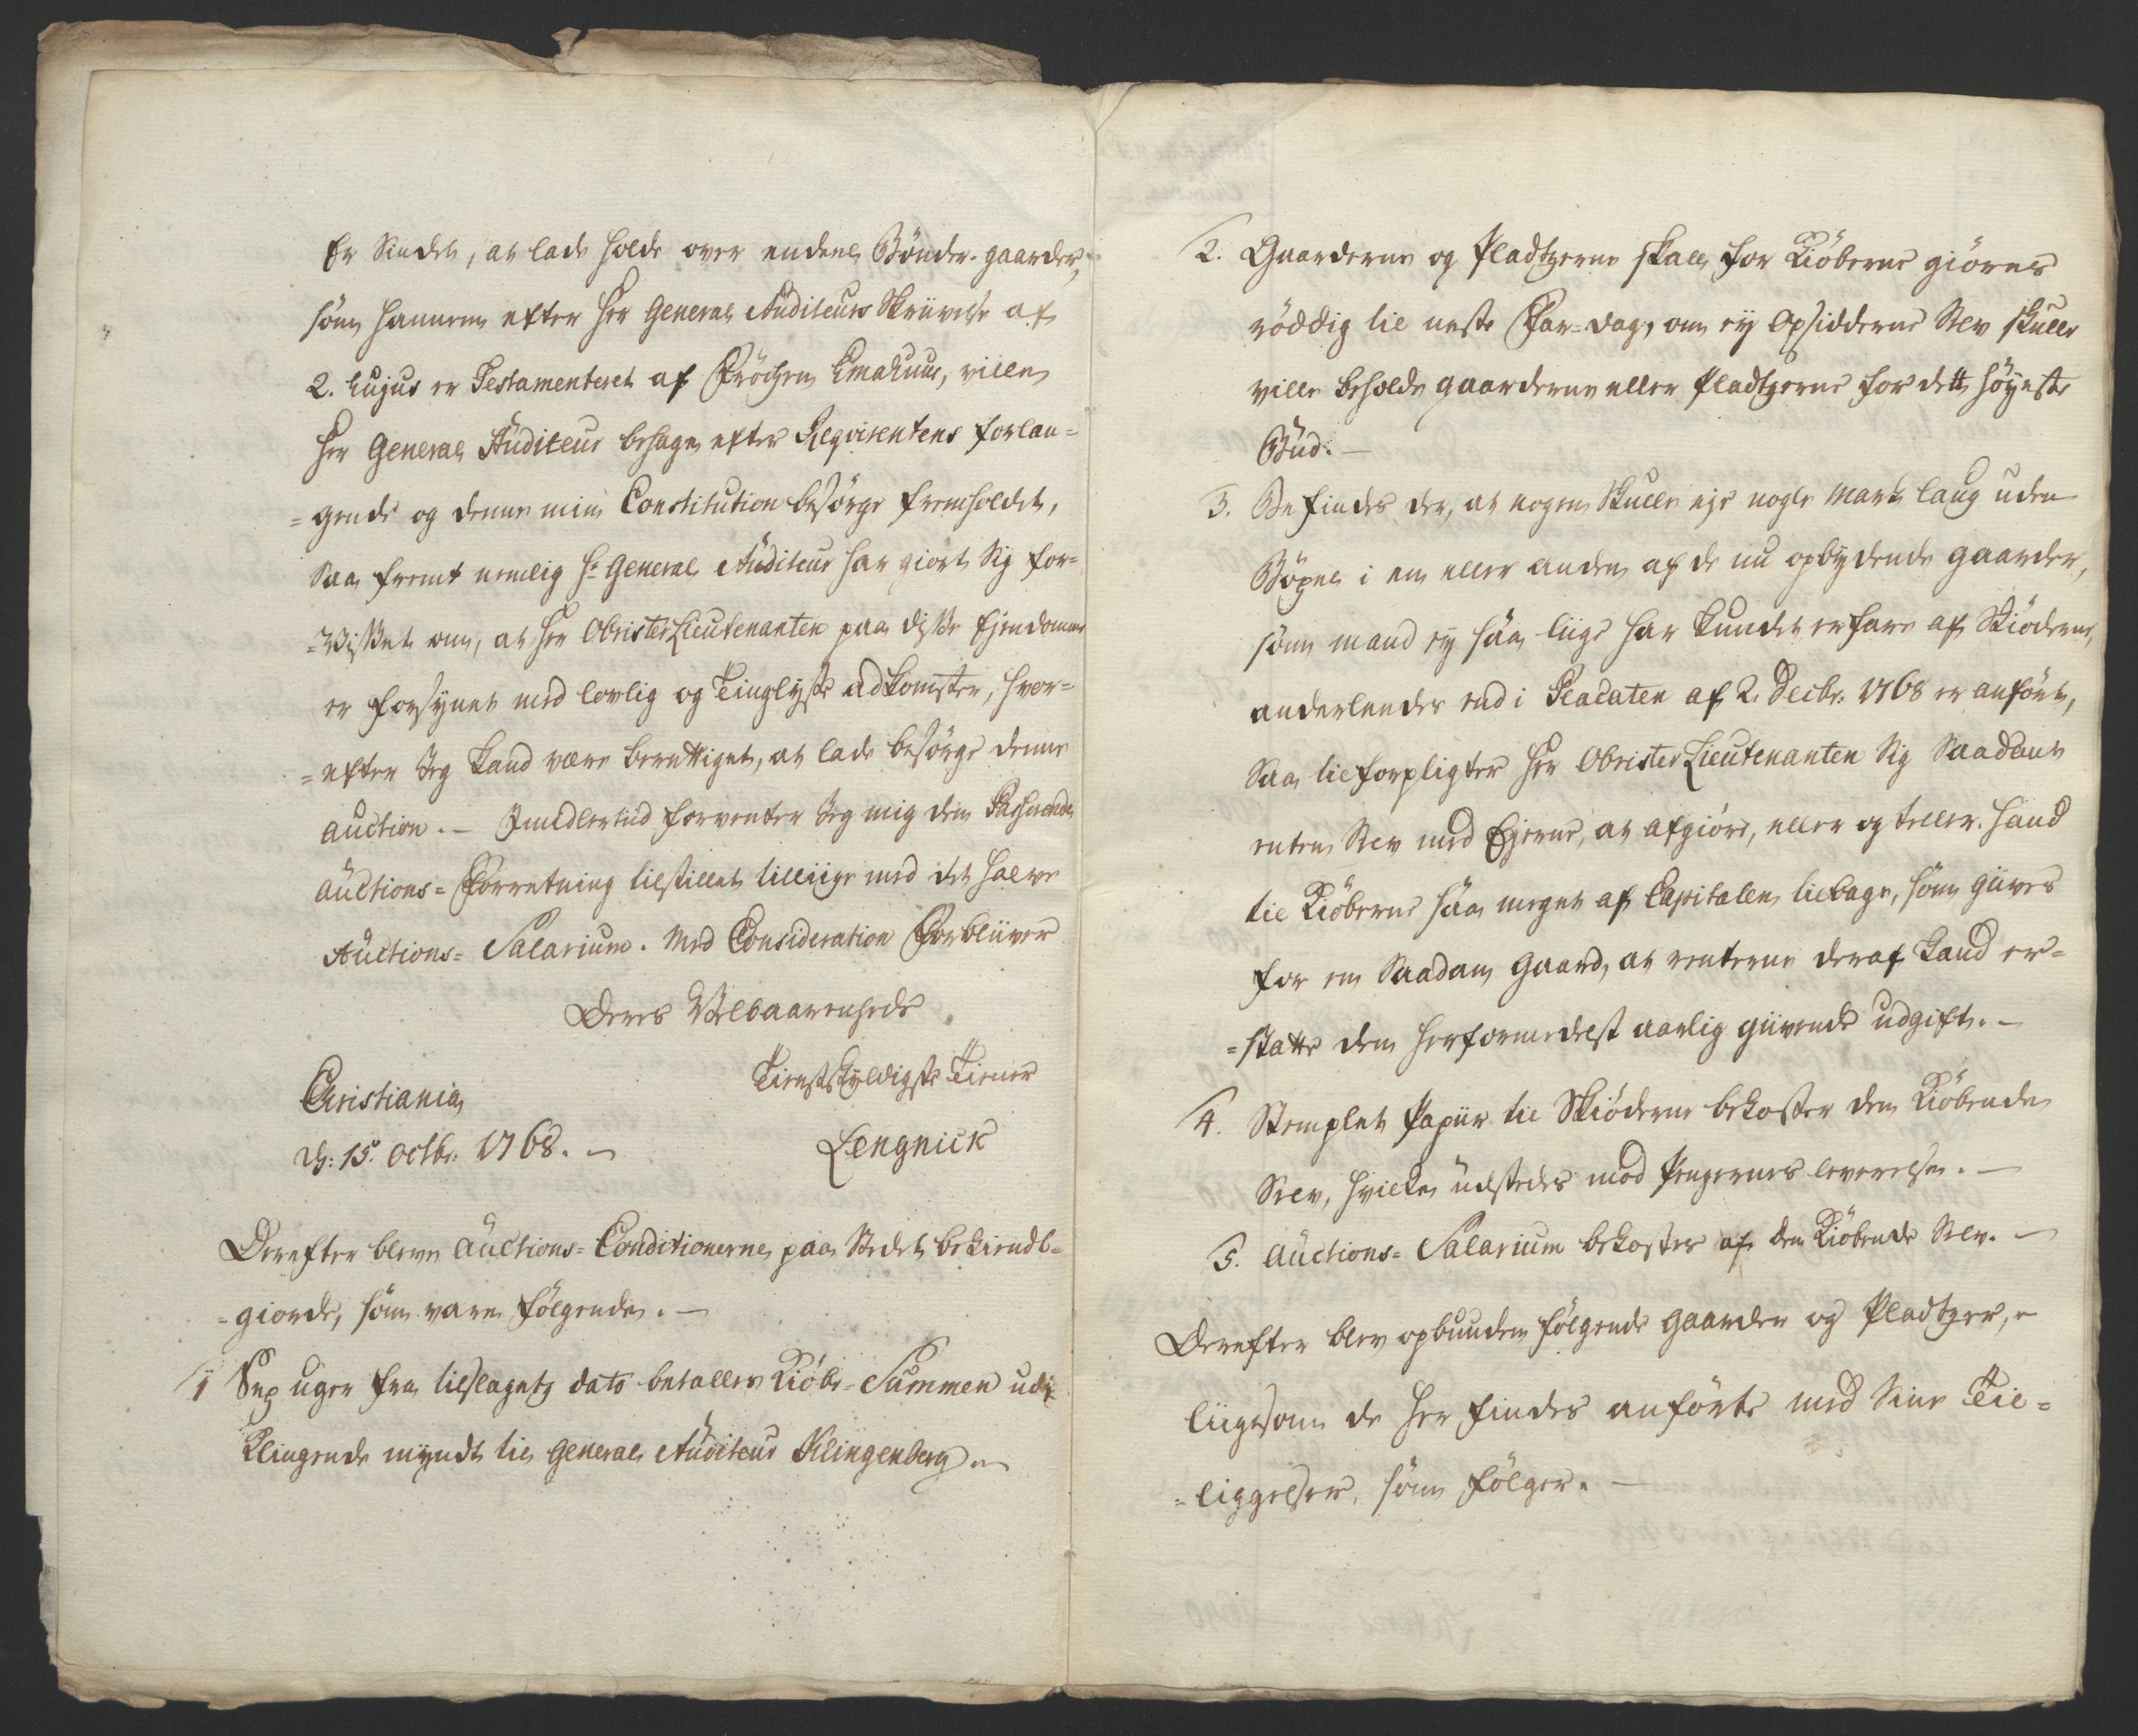 Er Sindet, at lade holde over endeel Bönder-gaarder,
som hannem efter Her General Auditeurs Skrivelse af
2. hujus er Testamenteret af Fröchen, ville
Her General Auditeur behage efter Reqvirentens forlan=
=gende og denne min Constitution besörge fremholdet,
Saa fremt nemlig Hr General Auditeur har giort Sig for=
=Visset om, at Her Obrister Lieutenanten paa disse Ejendomme
er forsynet med lovlig og Tinglyste adkomster, hvor=
=efter Jeg kand være berettiget, at lade besörge denne
auction. – Imidlertiid forventer Jeg mig den Passerende
auctions=Forretning tilstillet tilliige med det halve
Auctions= Salarium. Med Consideration Forbliver
Deres Velbaarenheds
Tienstskyldigste Tiener
Christiania
d: 15. Octbr: 1768. –
Lengnick
Derefter bleve Auctions=Conditionerne paa Stedet bekiendt=
=giorde, som vare følgende. –
1 Sex uger fra tilslagets dato betalles Kiöbe=Summen udi
Klingende myndt til General Auditeur Klingenberg. –
2. Gaarderne og Pladtzerne skall for Kiöberne giöres
röddig til neste Far=dag, om ej Opsidderne Selv skulle
ville beholde gaarderne eller Pladtzerne for dett höyeste
Bud. –
3. Befindes der, at nogen Skulle eje nogle mark laug uden
Böxel i en eller anden af de nu opbydende gaarder,
som mand ej saa liige har kundet erfare af Skiöderne,
anderleedes end i Placaten af 2. Decbr: 1768 er anfört,
Saa tilforpligter Her Obrister Lieutenanten Sig Saadant
enten Selv med Ejerne, at afgiöre, eller og teller hand
til Kiöberne saa meget af Capitalen tilbage, som giives
for en Saadan Gaard, at renterne deraf kand er=
=statte den herformedelst aarlig giivende udgift. –
4. Stemplet Papiir til Skiöderne bekoster den Kiöbende
Selv, hvilke udstedes mod Pengernes leverelse. –
5. Auctions= Salarium bekostes af den Kiöbende Selv. –
Derefter blev opbuuden fölgende Gaarder og Pladtzer,
liigesom de her findes anförte med Sine Til=
=liggelser, som fölger. –